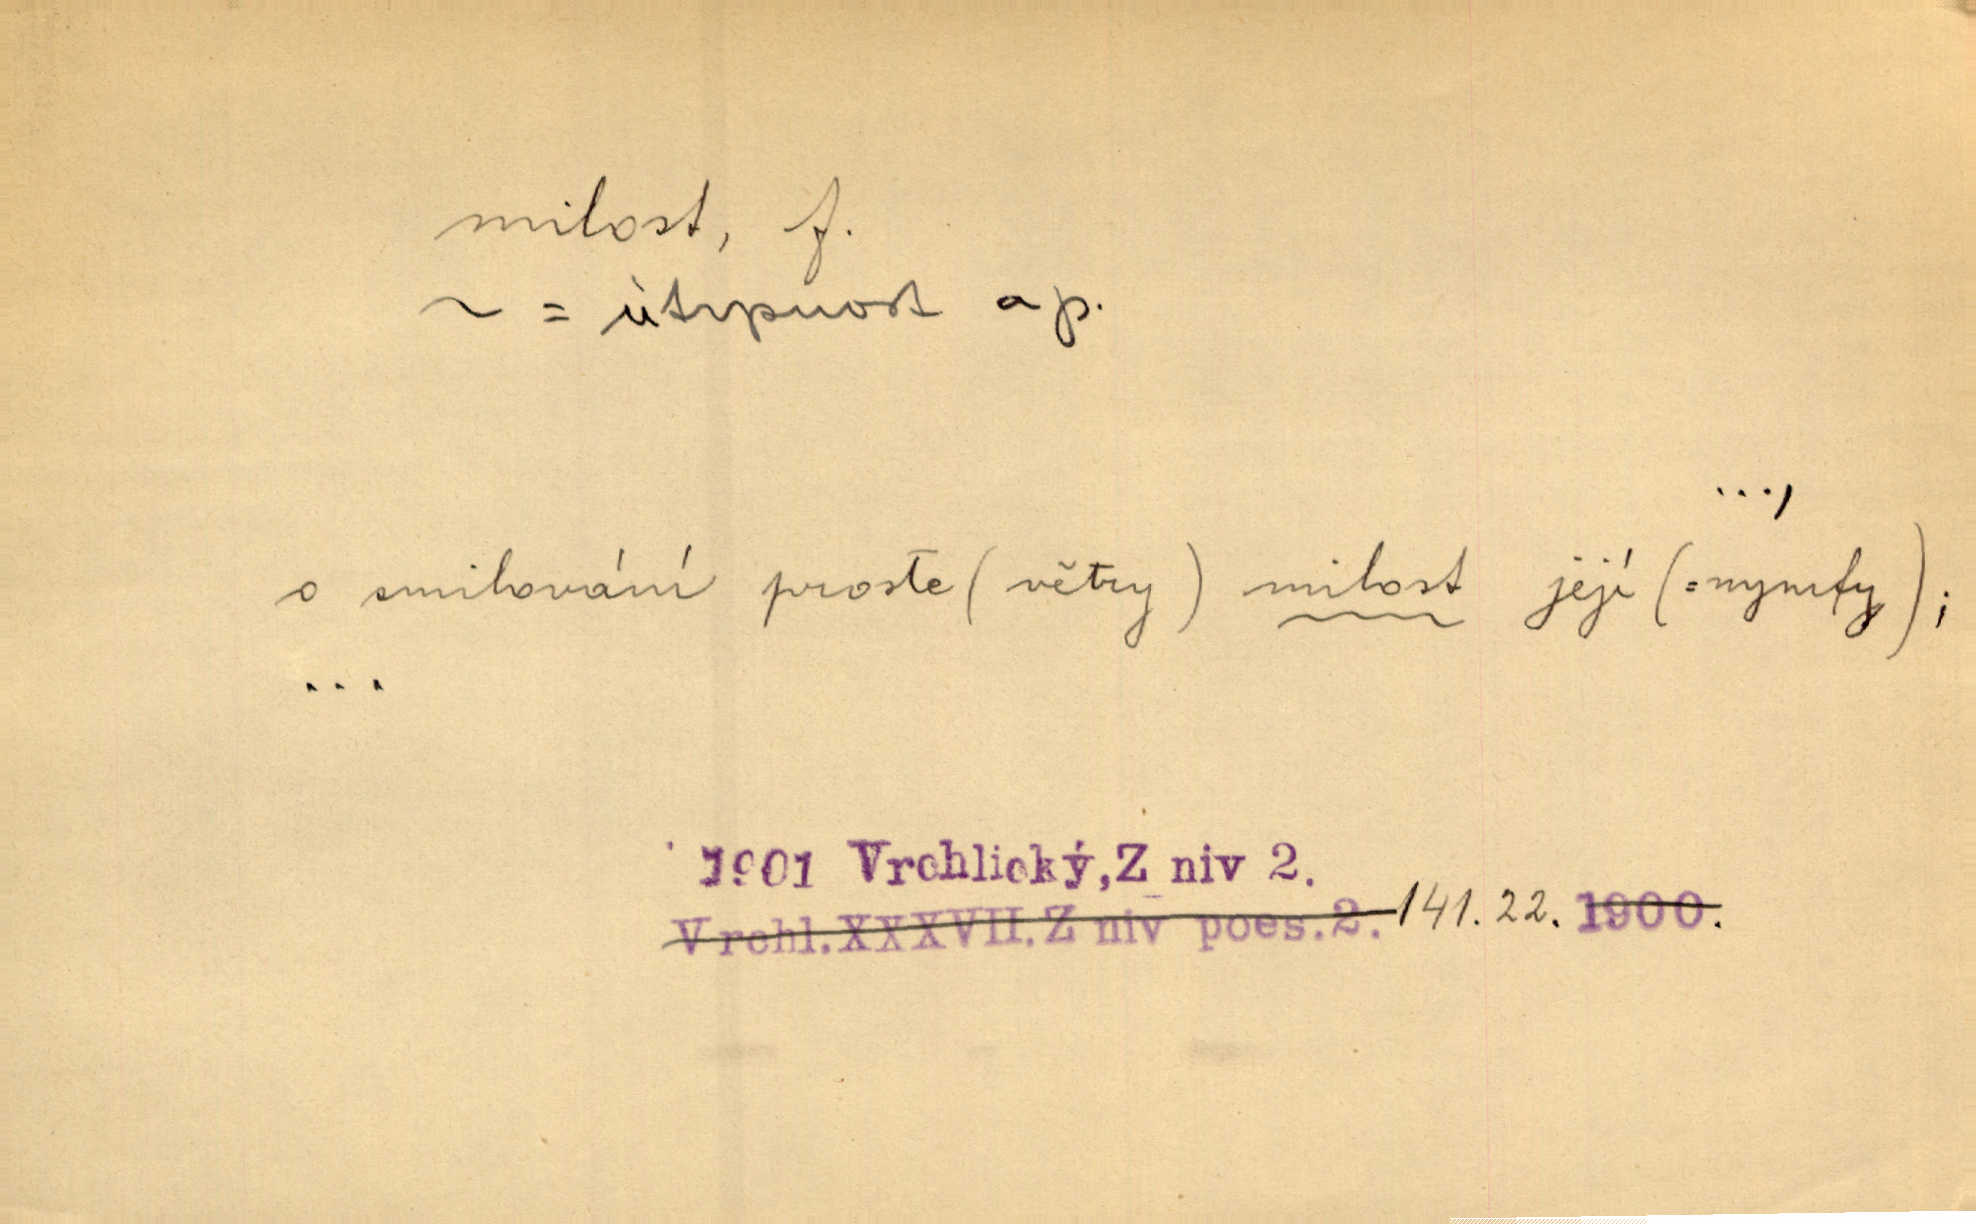 milost, f.
~ = útrpnost ap.
...,
o smilování prosťe (větry) milost její (=nymfy);
...
1901 Vrchlický, Z niv 2.
Vrchl. XXXVII. Z niv poes. 2. 141. 22. 1900.